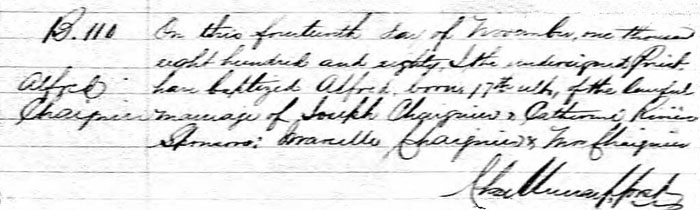 B. 110 On this fourteenth day of November, one thousand
eight hundred and eighty, I the undersigned Priest
Alfred have baptized Alfred, born 17th ult., of the lawful
Chaignier marriage of Joseph Chaignier & Catherine Rivière
Sponsors: Chaignier & Mrs Chaignier